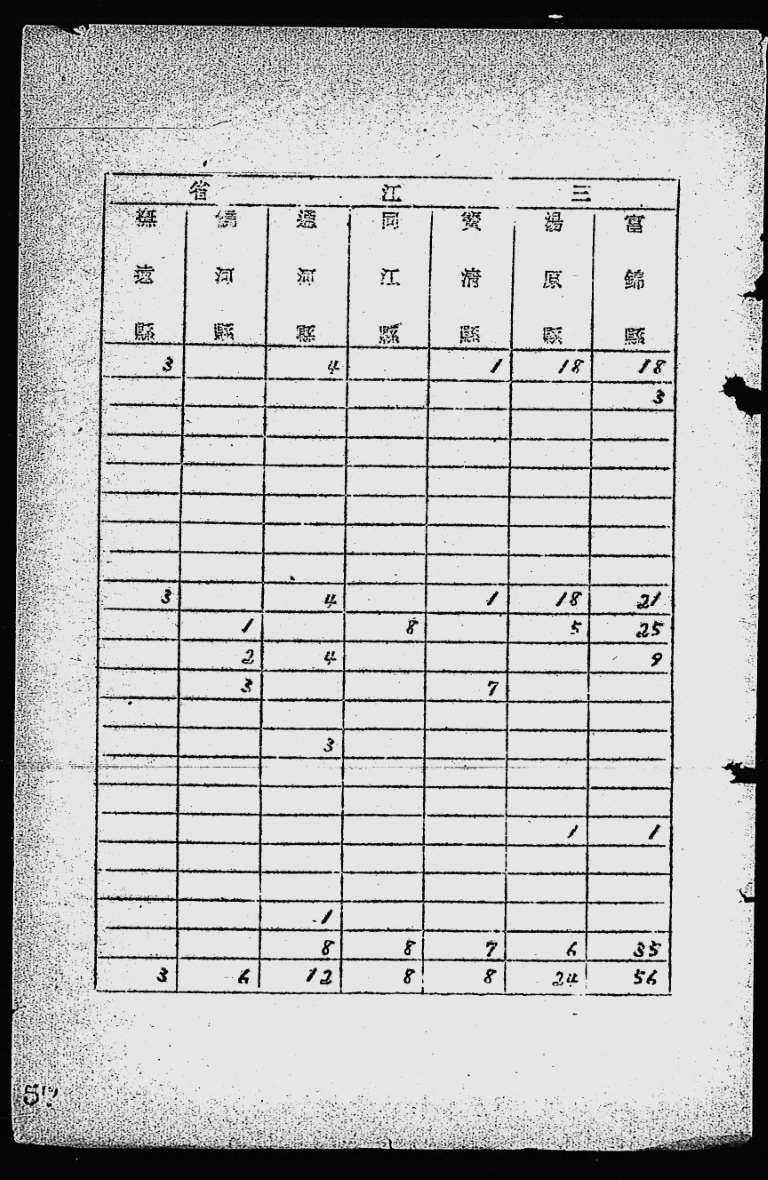 三江省
富錦縣 湯原縣 寶清縣 同江縣 通河縣 饒河縣 撫遠縣
18 18 1 4 3
3
21 18 1 4 3
25 5 8 1
9 4 2
7 3
3
1 1
1
35 6 7 8 8
56 24 8 8 12 6 3